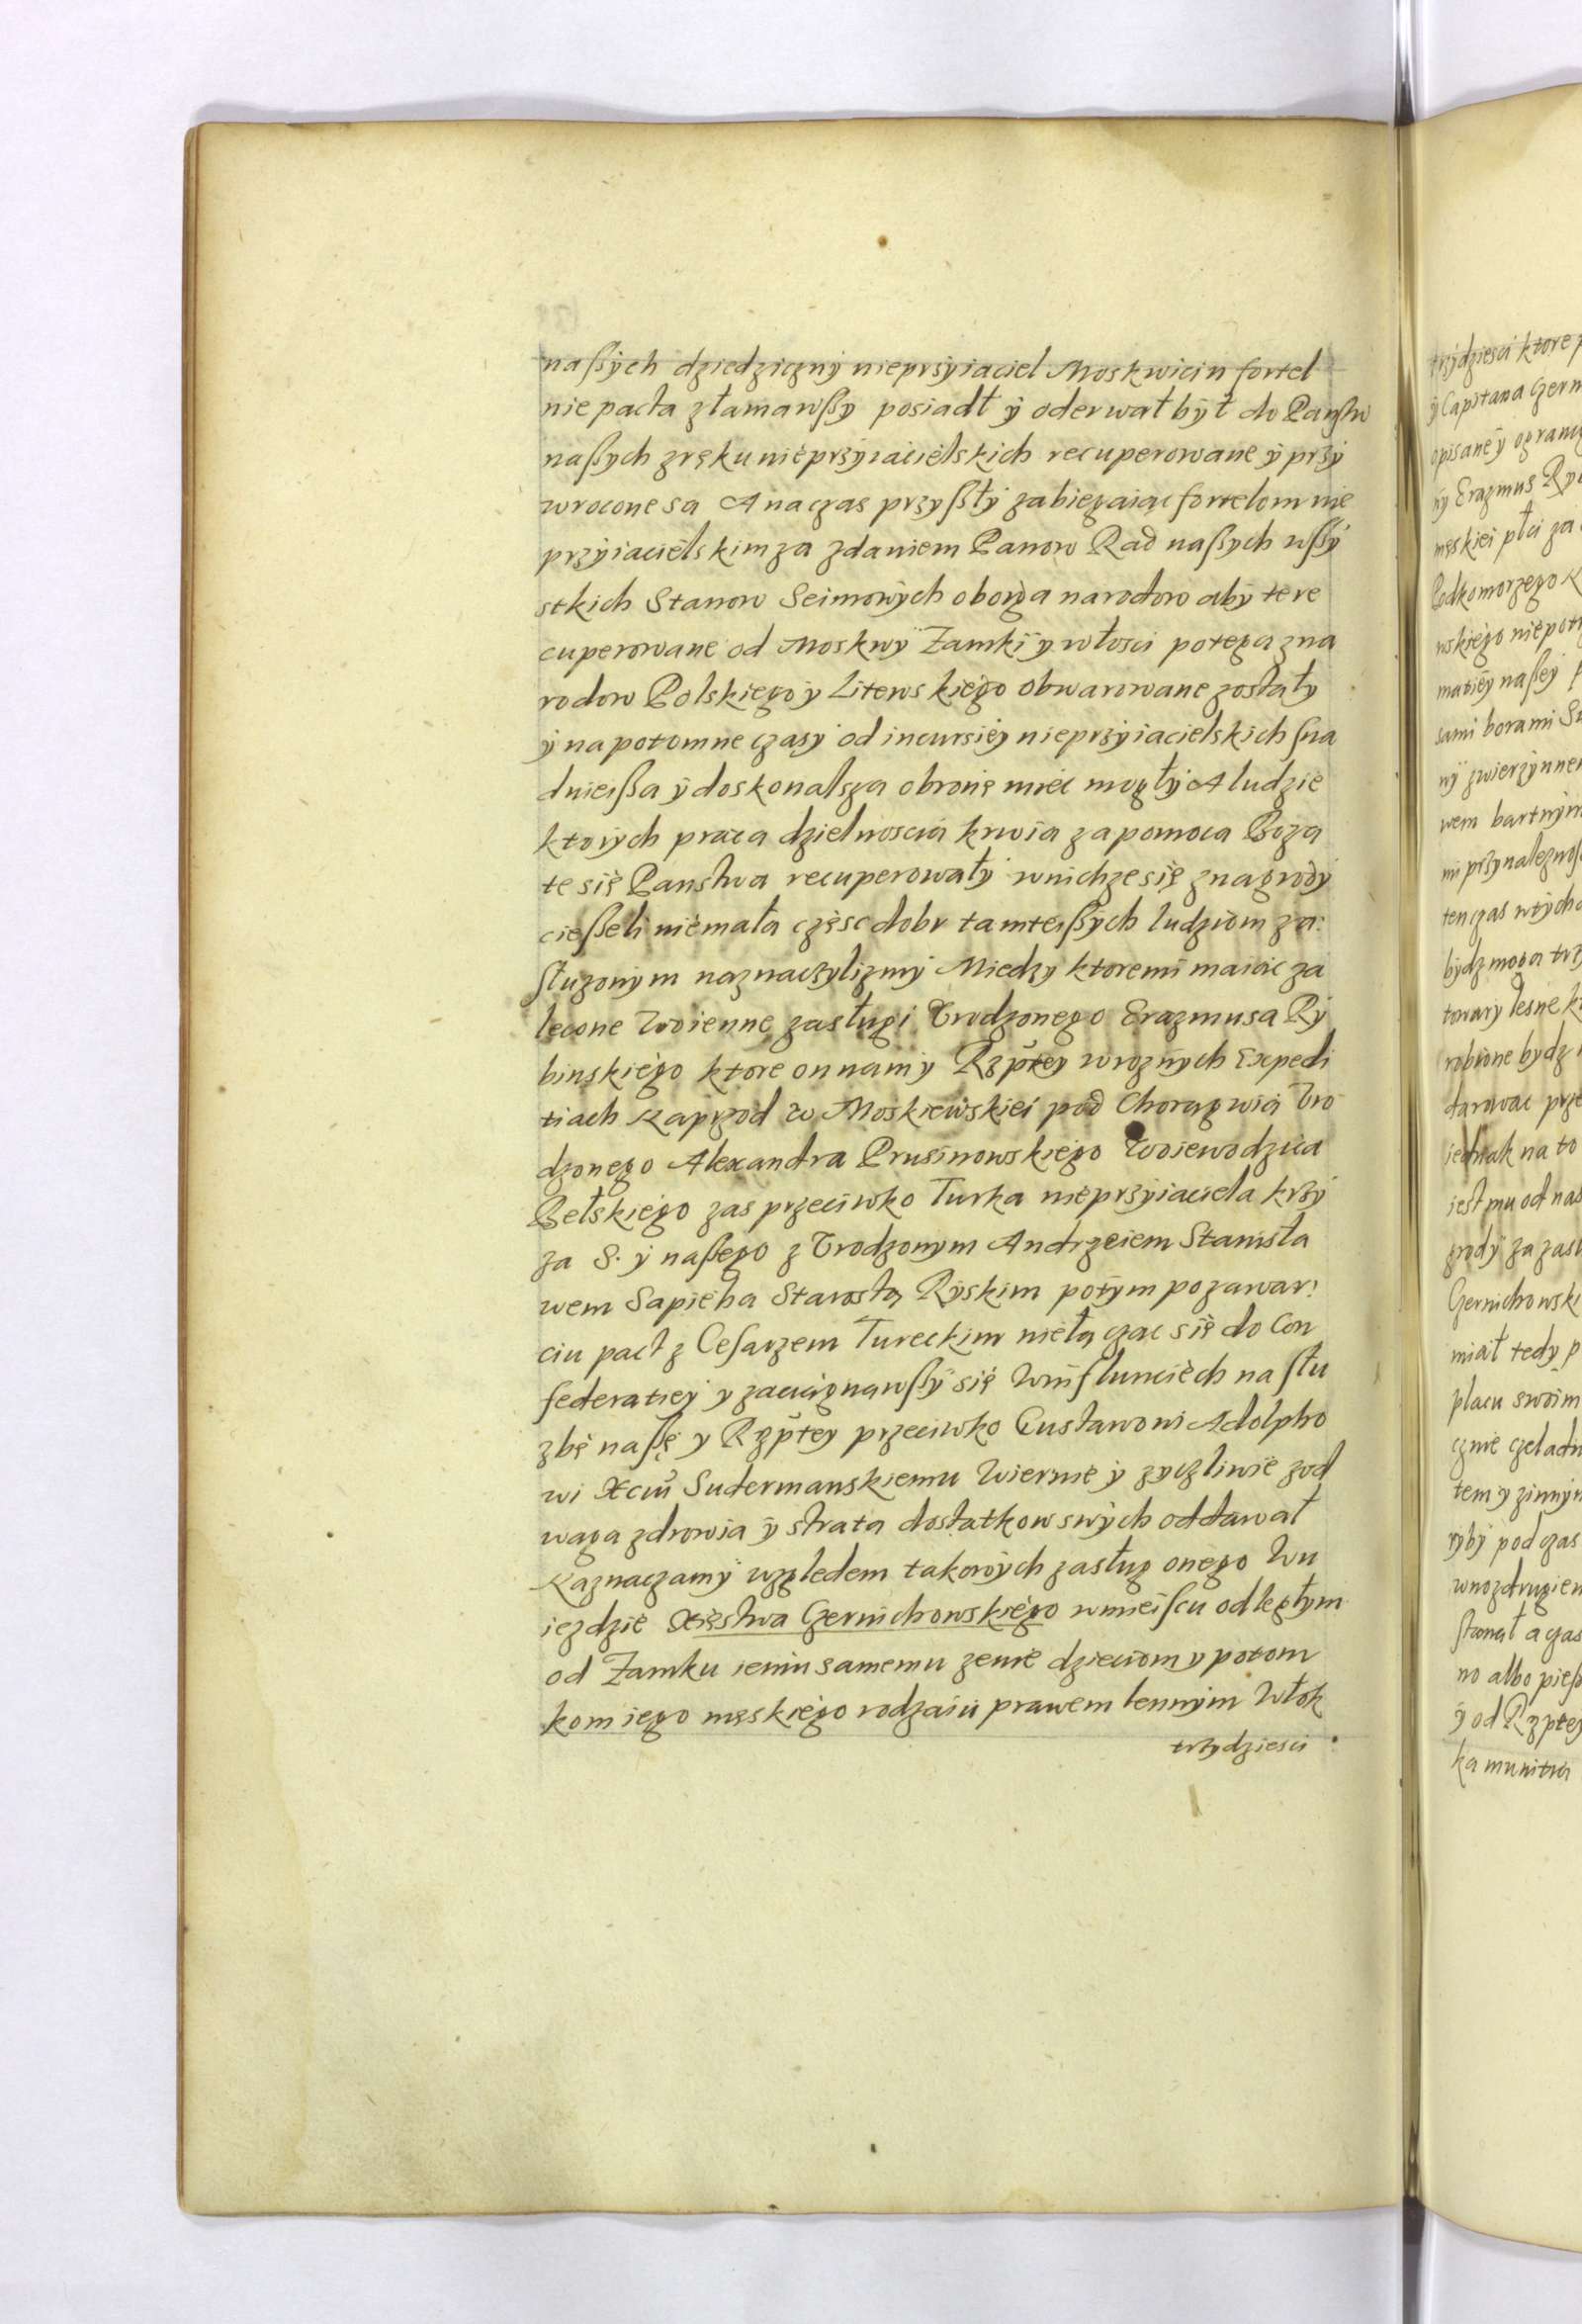 naßych dziedziczny nieprzyiaciel Moskwicin fortel
nie pacta złamawßy posiadł ÿ oderwał był do Państw
naßych z ręku nieprzyiacielskich recuperowane ÿ przy
wrocone sa A na czas przyßły zabiegaiąc fortelom nie
przyiacielskim za zdaniem Panow Rad naßych wßy
stkich Stanow Seimowych oboyga narodow aby te re
cuperowane od Moskwy Zamki y włosci potęgą z na
rodow Polskiego y Litewskiego obwarowane zostały
ÿ na potomne czasy od incursiÿ nieprzyiacielskich sna
dnieißa ÿ doskonalsza obronę miec mogły A ludzie
ktorych praca dzielnoscia krwia za pomoca Boza
te się Panstwa recuperowały w nichze się z nagrody
cießeli niemała częsc dobr tamteißych ludziom za:
słuzonym naznaczylizmy Miedzy ktoremi maiąc za
lecone Woienne zasługi Urodzonego Erazmusa Ry
binskiego ktore on nam y Rzptey w roznych Expedi
tiach Naprzod w Moskiewskiei pod Chorągwia Uro
dzonego Alexandra Prusinowskiego Woiewodzica
Bełskiego zas przeciwko Turka nieprzyiaciela krzy
za S. y naßego z Urodzonym Andrzeiem Stanisła
wem Sapieha Starosta Ryskim potym po zawar:
ciu pact z Cesarzem Tureckim nie łączac się do Con
federatiey y zaciągnawßy się W Influnciech na słu
zbę naßę y Rzptey przeciwko Gustawowi Adolpho
wi Xcu Sudermanskiemu Wiernie y zyczliwie z od
waga zdrowia ÿ strata dostatkow swych oddawał
Naznaczamy względem takowych zasług onego W u
iezdzie Xięstwa Czernichowskiego w mieiscu odległym
od Zamku iemu samemu zenie dzieciom y potom
kom iego męskiego rodzaiu prawem lennym Włok
trzydziesci
trzydziesci ktore
opisane y
ny Erazmus
męskiei płci za
Podkomorzego
wskiego
naßey
sami borami
wem bartnym
ten czas
bydz moga
towary lesne
robione bydz
darowac
iednak na to
iest mu od nas
grody za
miał tedy
placu swoim
cznie
tem y
ryby pod czas
no albo
y od Rzptey